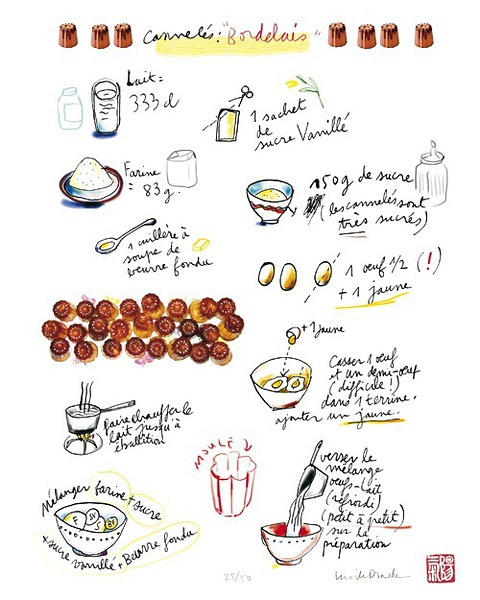 cannelés: "Bordelais"
Lait =
333 cl
1 sachet
de
sucre Vanillé
Farine
= 83g.
150g de sucre
(les cannelés sont
très sucrés)
1 cuillère à
soupe de
beurre fondu
1 oeuf 1/2 (!)
+ 1 jaune
+ 1 jaune
Casser 1 oeuf
et un demi-oeuf
(difficile!)
dans 1 terrine.
ajouter un jaune.
faire chauffer le
lait jusqu'à
ébullition
MOULE
verser le
mélange
oeufs-lait
(refroidi)
(petit à petit)
sur la
préparation
Mélanger farine + sucre
F
SV
BF
+ sucre vanillé + Beurre fondu
25/50